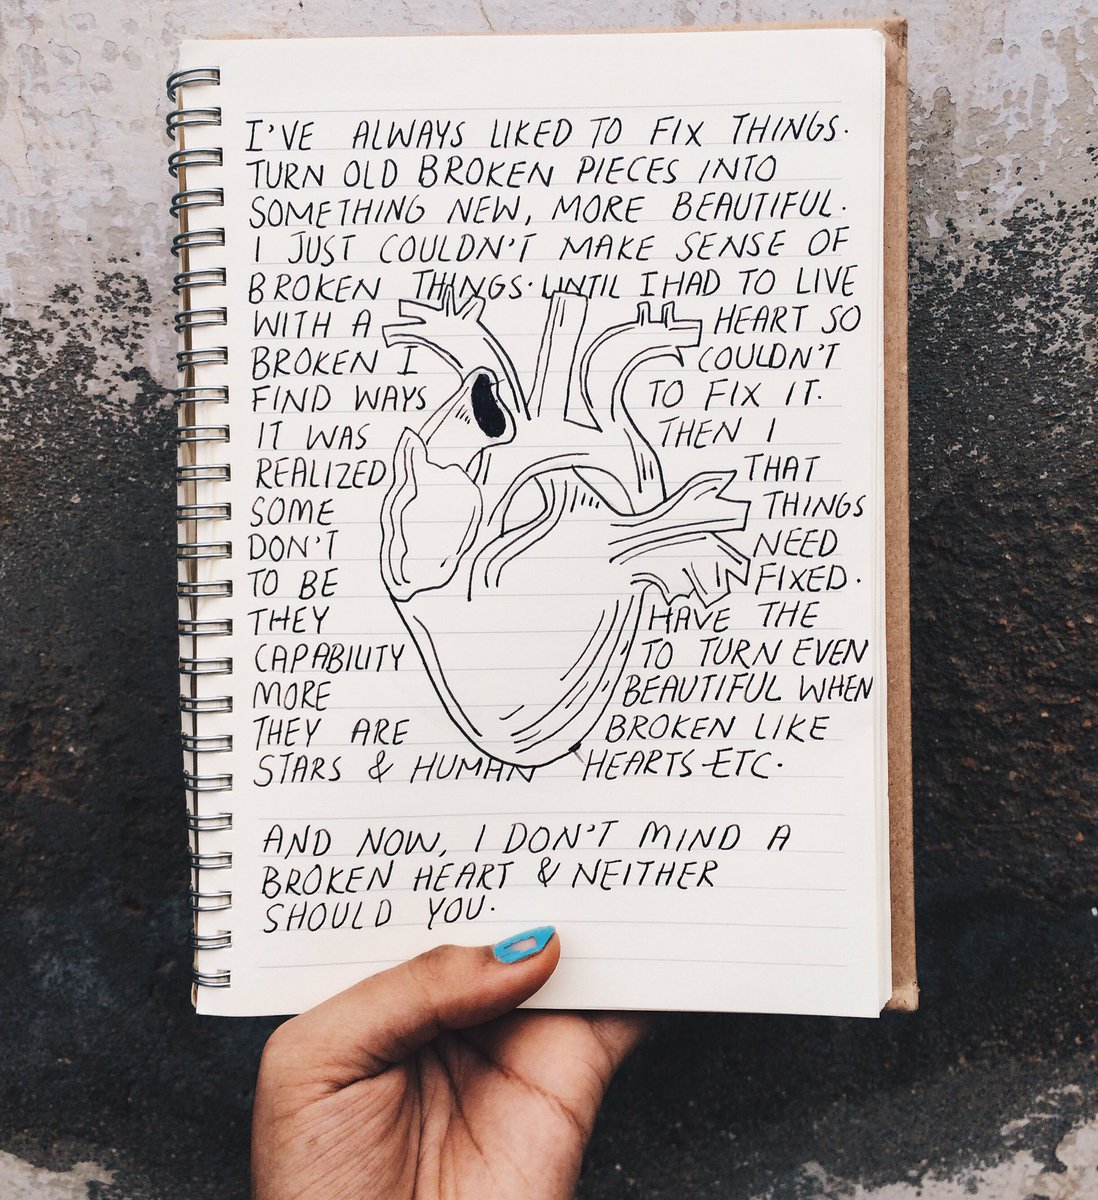 I'VE ALWAYS LIKED TO FIX THINGS.
TURN OLD BROKEN PIECES INTO
SOMETHING NEW, MORE BEAUTIFUL.
I JUST COULDN'T MAKE SENSE OF
BROKEN THINGS. UNTIL I HAD TO LIVE
WITH A HEART SO
BROKEN I COULDN'T
FIND WAYS TO FIX IT.
IT WAS THEN I
REALIZED THAT
SOME THINGS
DON'T NEED
TO BE FIXED.
THEY HAVE THE
CAPABILITY TO TURN EVEN
MORE BEAUTIFUL WHEN
THEY ARE BROKEN LIKE
STARS & HUMAN HEARTS ETC.
AND NOW, I DON'T MIND A
BROKEN HEART & NEITHER
SHOULD YOU.